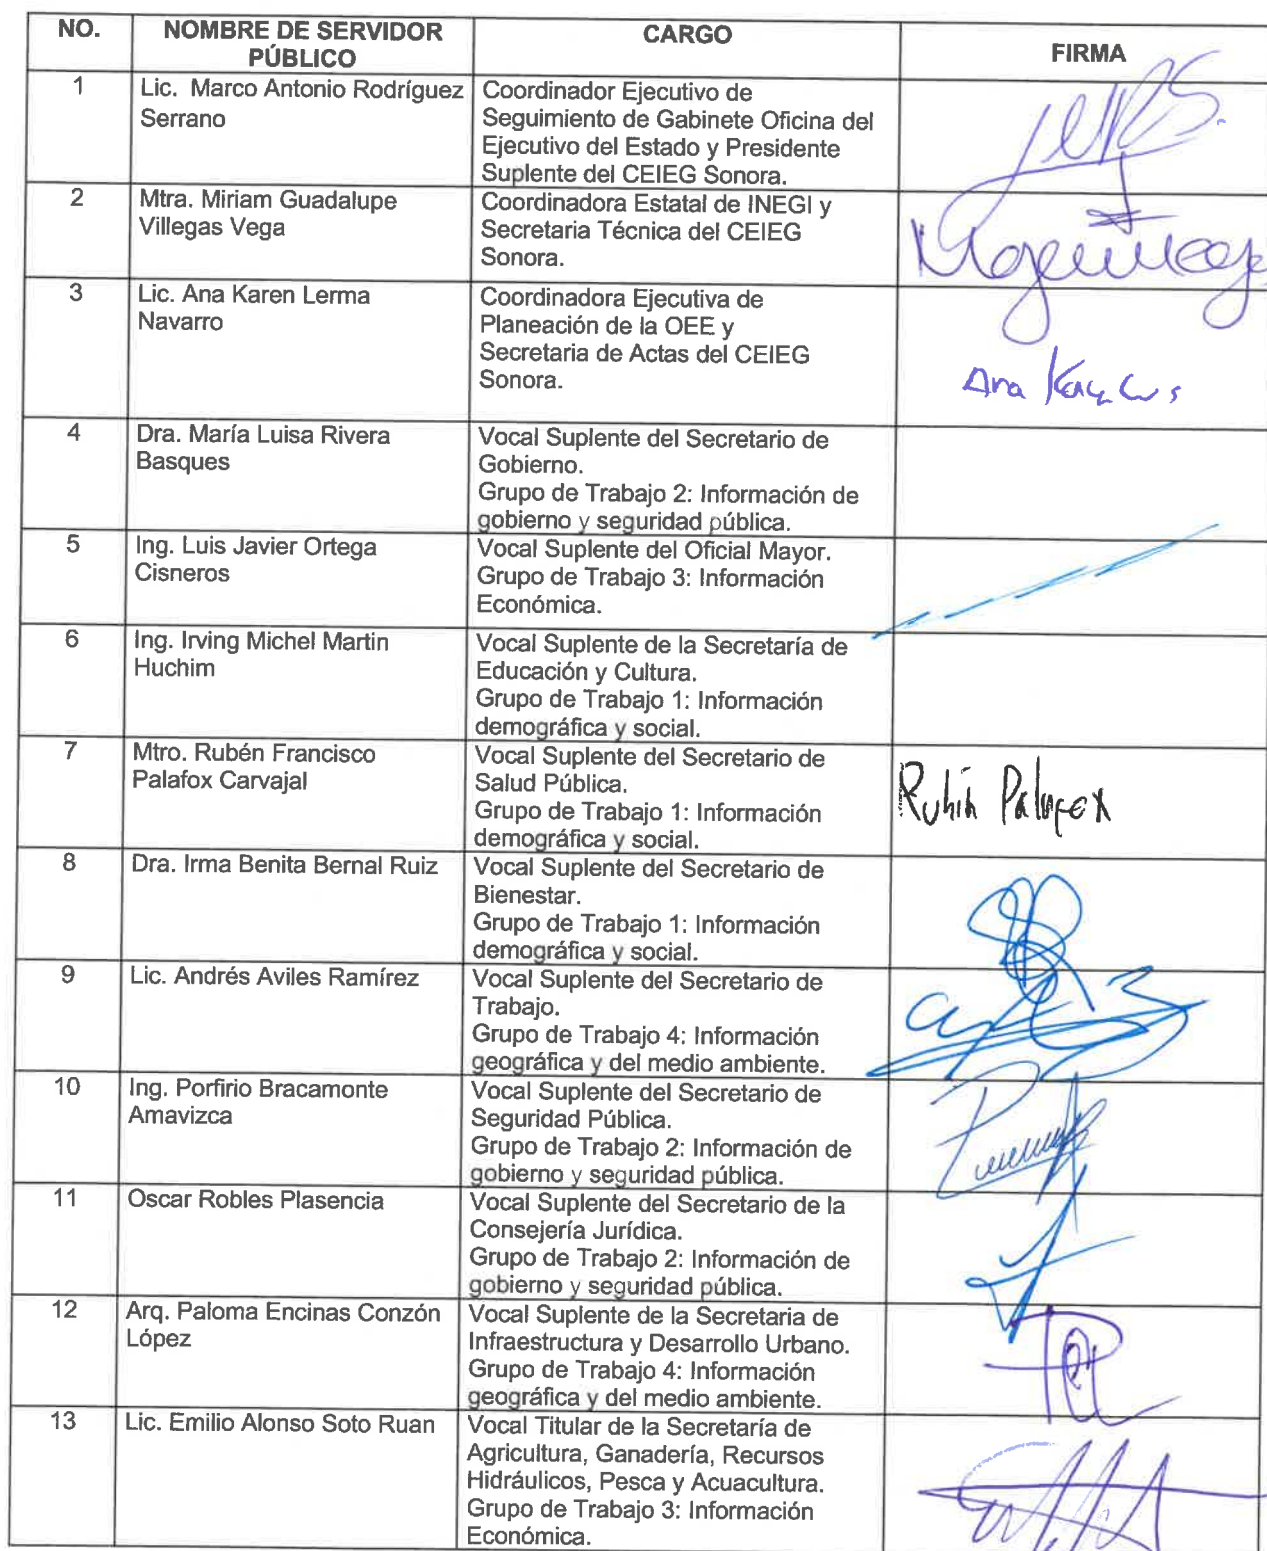 NO.
NOMBRE DE SERVIDOR
PÚBLICO
CARGO
FIRMA
1
Lic. Marco Antonio Rodríguez
Serrano
Coordinador Ejecutivo de
Seguimiento de Gabinete Oficina del
Ejecutivo del Estado y Presidente
Suplente del CEIEG Sonora.
2
Mtra. Miriam Guadalupe
Villegas Vega
Coordinadora Estatal de INEGI y
Secretaria Técnica del CEIEG
Sonora.
3
Lic. Ana Karen Lerma
Navarro
Coordinadora Ejecutiva de
Planeación de la OEE y
Secretaria de Actas del CEIEG
Sonora.
Ana Karen
4
Dra. María Luisa Rivera
Basques
Vocal Suplente del Secretario de
Gobierno.
Grupo de Trabajo 2: Información de
gobierno y seguridad pública.
5
Ing. Luis Javier Ortega
Cisneros
Vocal Suplente del Oficial Mayor.
Grupo de Trabajo 3: Información
Económica.
6
Ing. Irving Michel Martin
Huchim
Vocal Suplente de la Secretaría de
Educación y Cultura.
Grupo de Trabajo 1: Información
demográfica y social.
7
Mtro. Rubén Francisco
Palafox Carvajal
Vocal Suplente del Secretario de
Salud Pública.
Grupo de Trabajo 1: Información
demográfica y social.
Rubén Palafox
8
Dra. Irma Benita Bernal Ruiz
Vocal Suplente del Secretario de
Bienestar.
Grupo de Trabajo 1: Información
demográfica y social.
9
Lic. Andrés Aviles Ramírez
Vocal Suplente del Secretario de
Trabajo.
Grupo de Trabajo 4: Información
geográfica y del medio ambiente.
10
Ing. Porfirio Bracamonte
Amavizca
Vocal Suplente del Secretario de
Seguridad Pública.
Grupo de Trabajo 2: Información de
gobierno y seguridad pública.
11
Oscar Robles Plasencia
Vocal Suplente del Secretario de la
Consejería Jurídica.
Grupo de Trabajo 2: Información de
gobierno y seguridad pública.
12
Arq. Paloma Encinas Conzón
López
Vocal Suplente de la Secretaria de
Infraestructura y Desarrollo Urbano.
Grupo de Trabajo 4: Información
geográfica y del medio ambiente.
13
Lic. Emilio Alonso Soto Ruan
Vocal Titular de la Secretaría de
Agricultura, Ganadería, Recursos
Hidráulicos, Pesca y Acuacultura.
Grupo de Trabajo 3: Información
Económica.